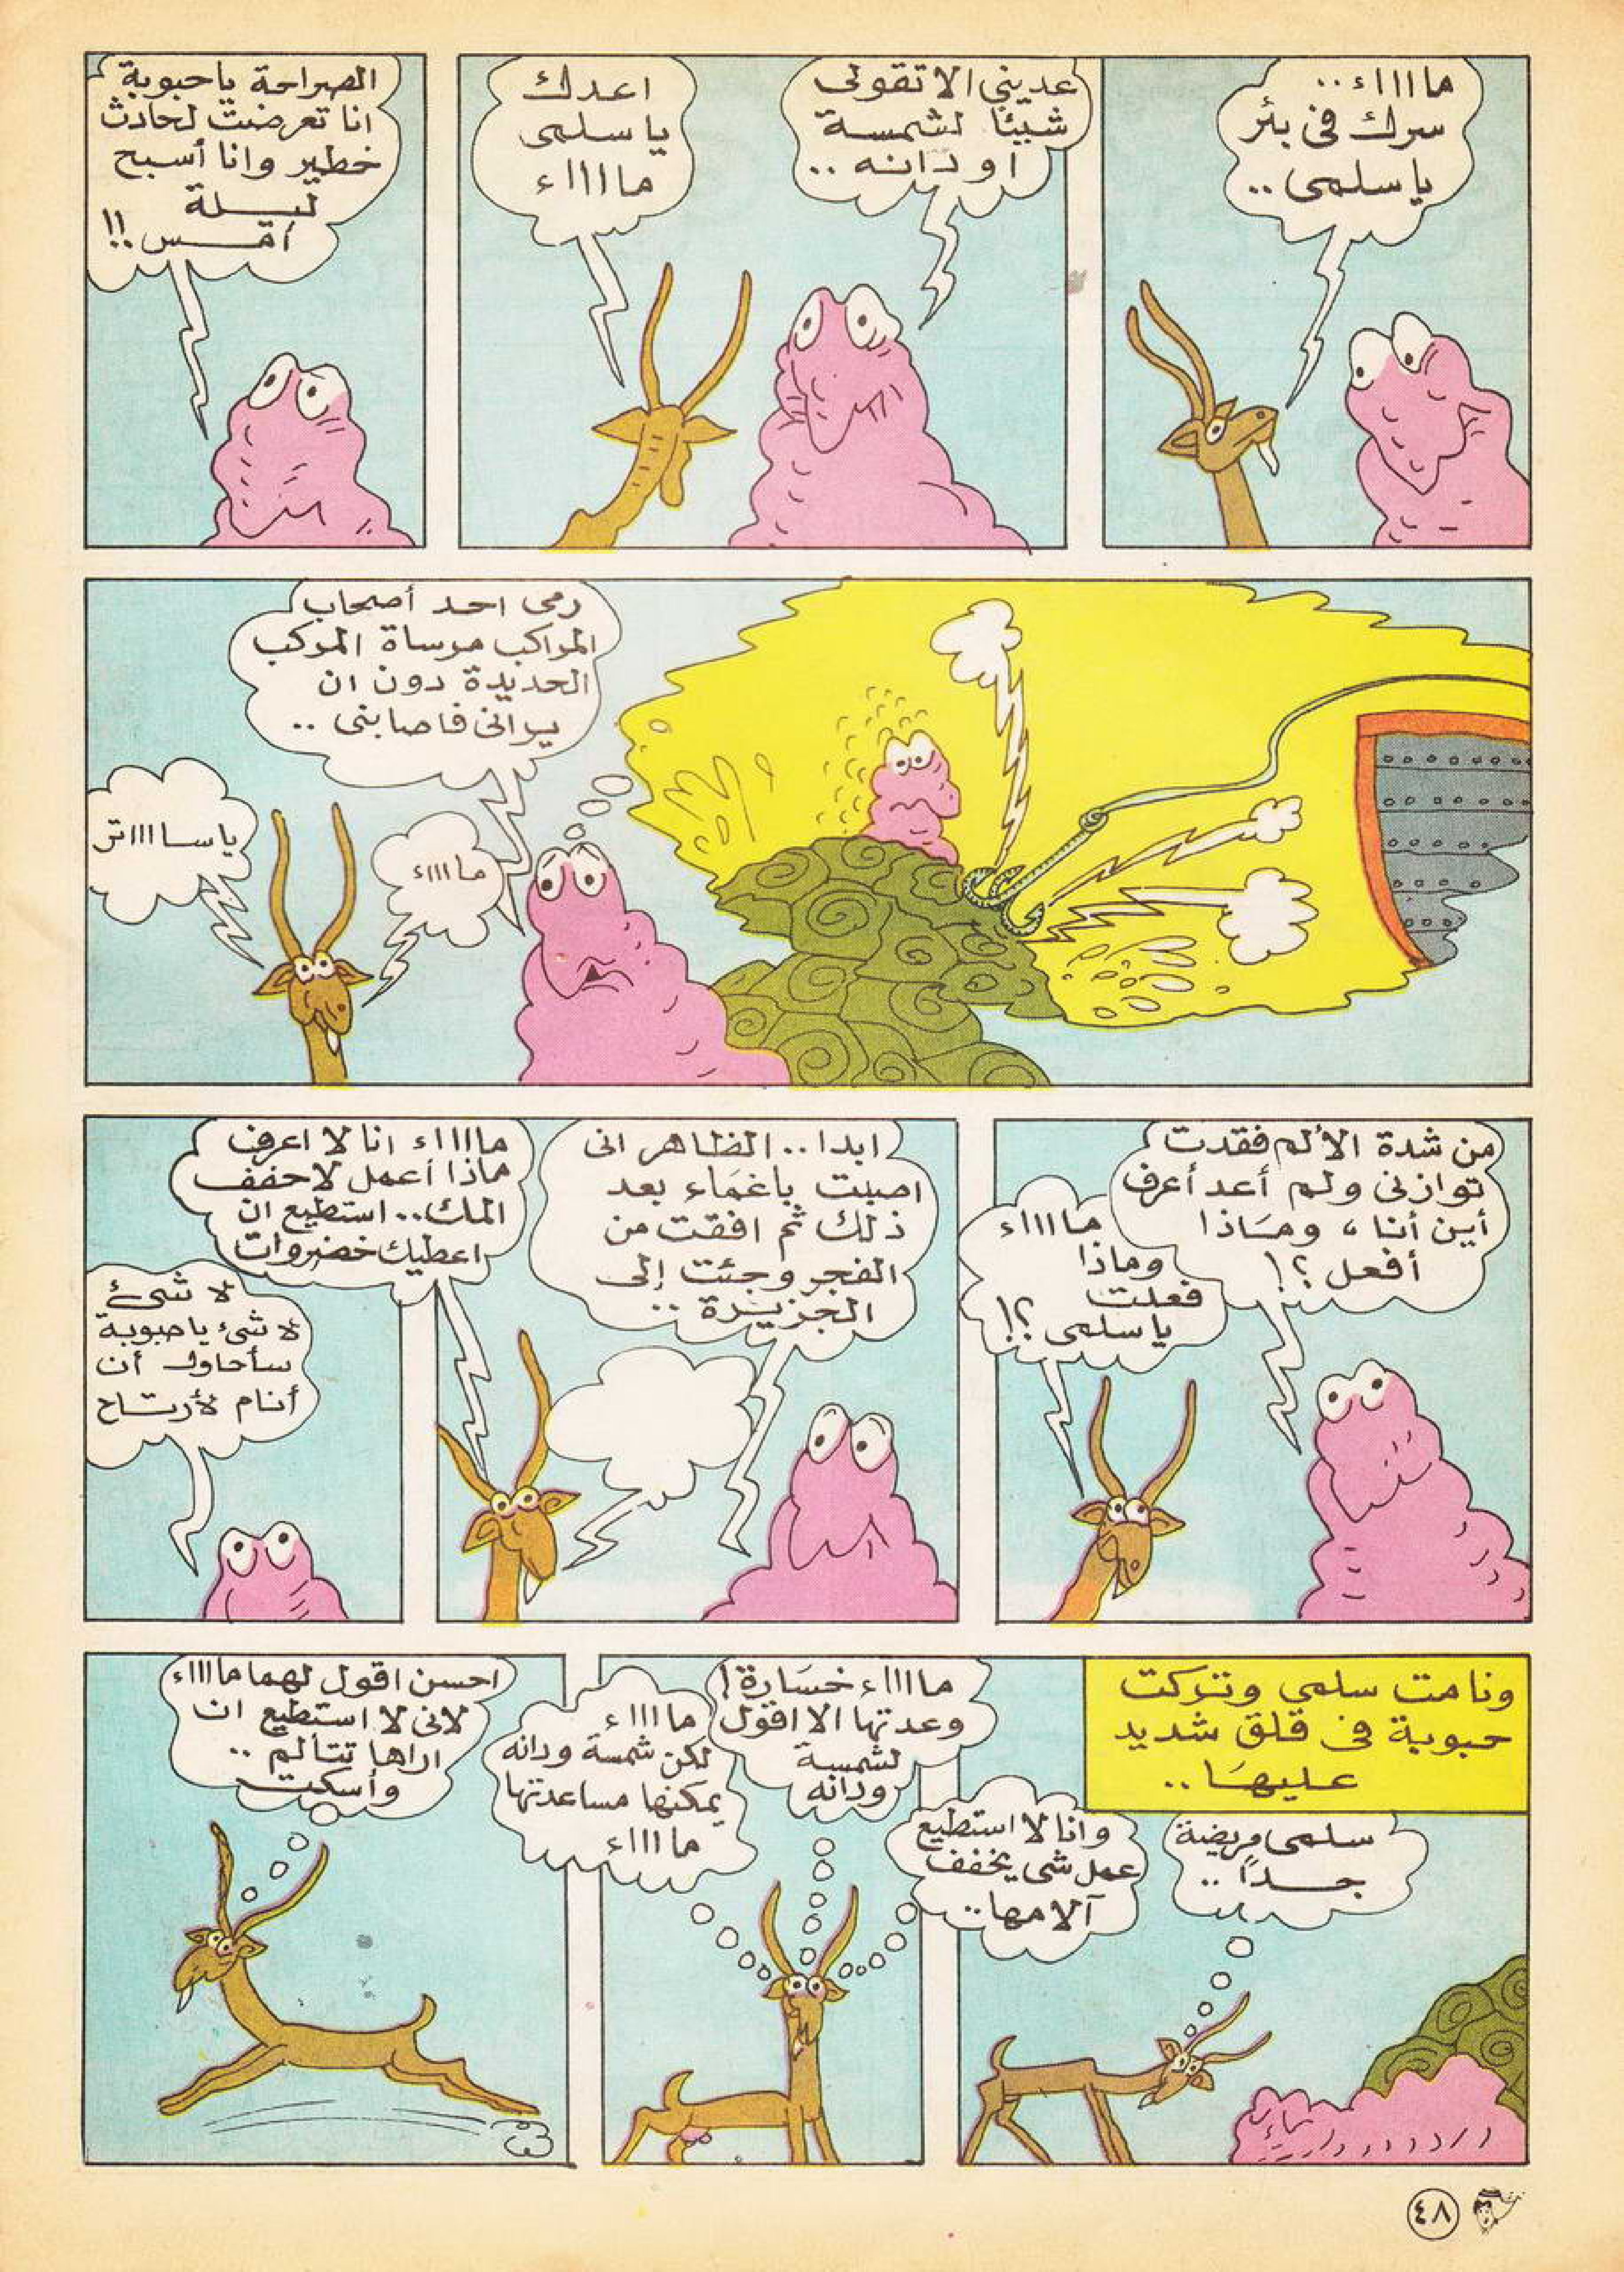 ماااااء..
سرك فى بئر
يا سلمى..
عدينى الا تقولى
شيئا لشمسة
او دانه..
اعدك
يا سلمى
مااااء
الصراحة يا حبوبة
انا تعرضت لحادث
خطير وانا أسبح
ليلة
أمس..!!
رمى احد أصحاب
المراكب مرساة المركب
الحديدة دون ان
يرانى فاصابنى..
مااااء
يا ساااااتر
من شدة الألم فقدت
توازنى ولم أعد أعرف
أين أنا، وماذا
أفعل؟!
مااااء
وماذا
فعلت
يا سلمى؟!
ابدا.. الظاهر انى
اصبت باغماء بعد
ذلك ثم افقت من
الفجر وجئت إلى
الجزيرة..
مااااء انا لا اعرف
ماذا أعمل لاخفف
المك.. استطيع ان
اعطيك خضروات
لا شئ
لا شئ يا حبوبة
سأحاول أن
أنام لأرتاح
ونامت سلمى وتركت
حبوبة فى قلق شديد
عليها..
سلمى مريضة
جداً..
وانا لا استطيع
عمل شى يخفف
آلامها..
مااااء خسارة!
وعدتها الا اقول
لشمسة
ودانه
مااااء
لكن شمسة ودانه
يمكنها مساعدتها
مااااء
احسن اقول لهما مااااء
لانى لا استطيع ان
اراها تتألم..
وأسكت
٤٨